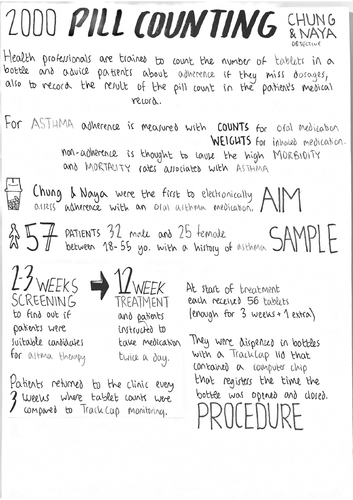 2000 PILL COUNTING CHUNG
& NAYA
OBJECTIVE
Health professionals are trained to count the number of tablets in a
bottle and advice patients about adherence if they miss dosages,
also to record the result of the pill count in the patient's medical
record.
For ASTHMA adherence is measured with COUNTS for oral medication
WEIGHTS for inhaled medication.
non-adherence is thought to cause the high MORBIDITY
and MORTALITY rates associated with ASTHMA
Chung & Naya were the first to electronically
assess adherence with an oral asthma medication.
AIM
57 PATIENTS 32 male and 25 female
between 18-55 yo. with a history of asthma
SAMPLE
2-3 WEEKS
SCREENING
to find out if
patients were
suitable candidates
for astma therapy
12 WEEK
TREATMENT
and patients
instructed to
take medication
twice a day.
At start of treatment
each received 56 tablets
(enough for 3 weeks + 1 extra)
Patients returned to the clinic every
3 weeks where tablet counts were
compared to TrackCap monitoring.
They were dispenced in bottles
with a TrackCap lid that
contained a computer chip
that registers the time the
bottle was opened and closed.
PROCEDURE